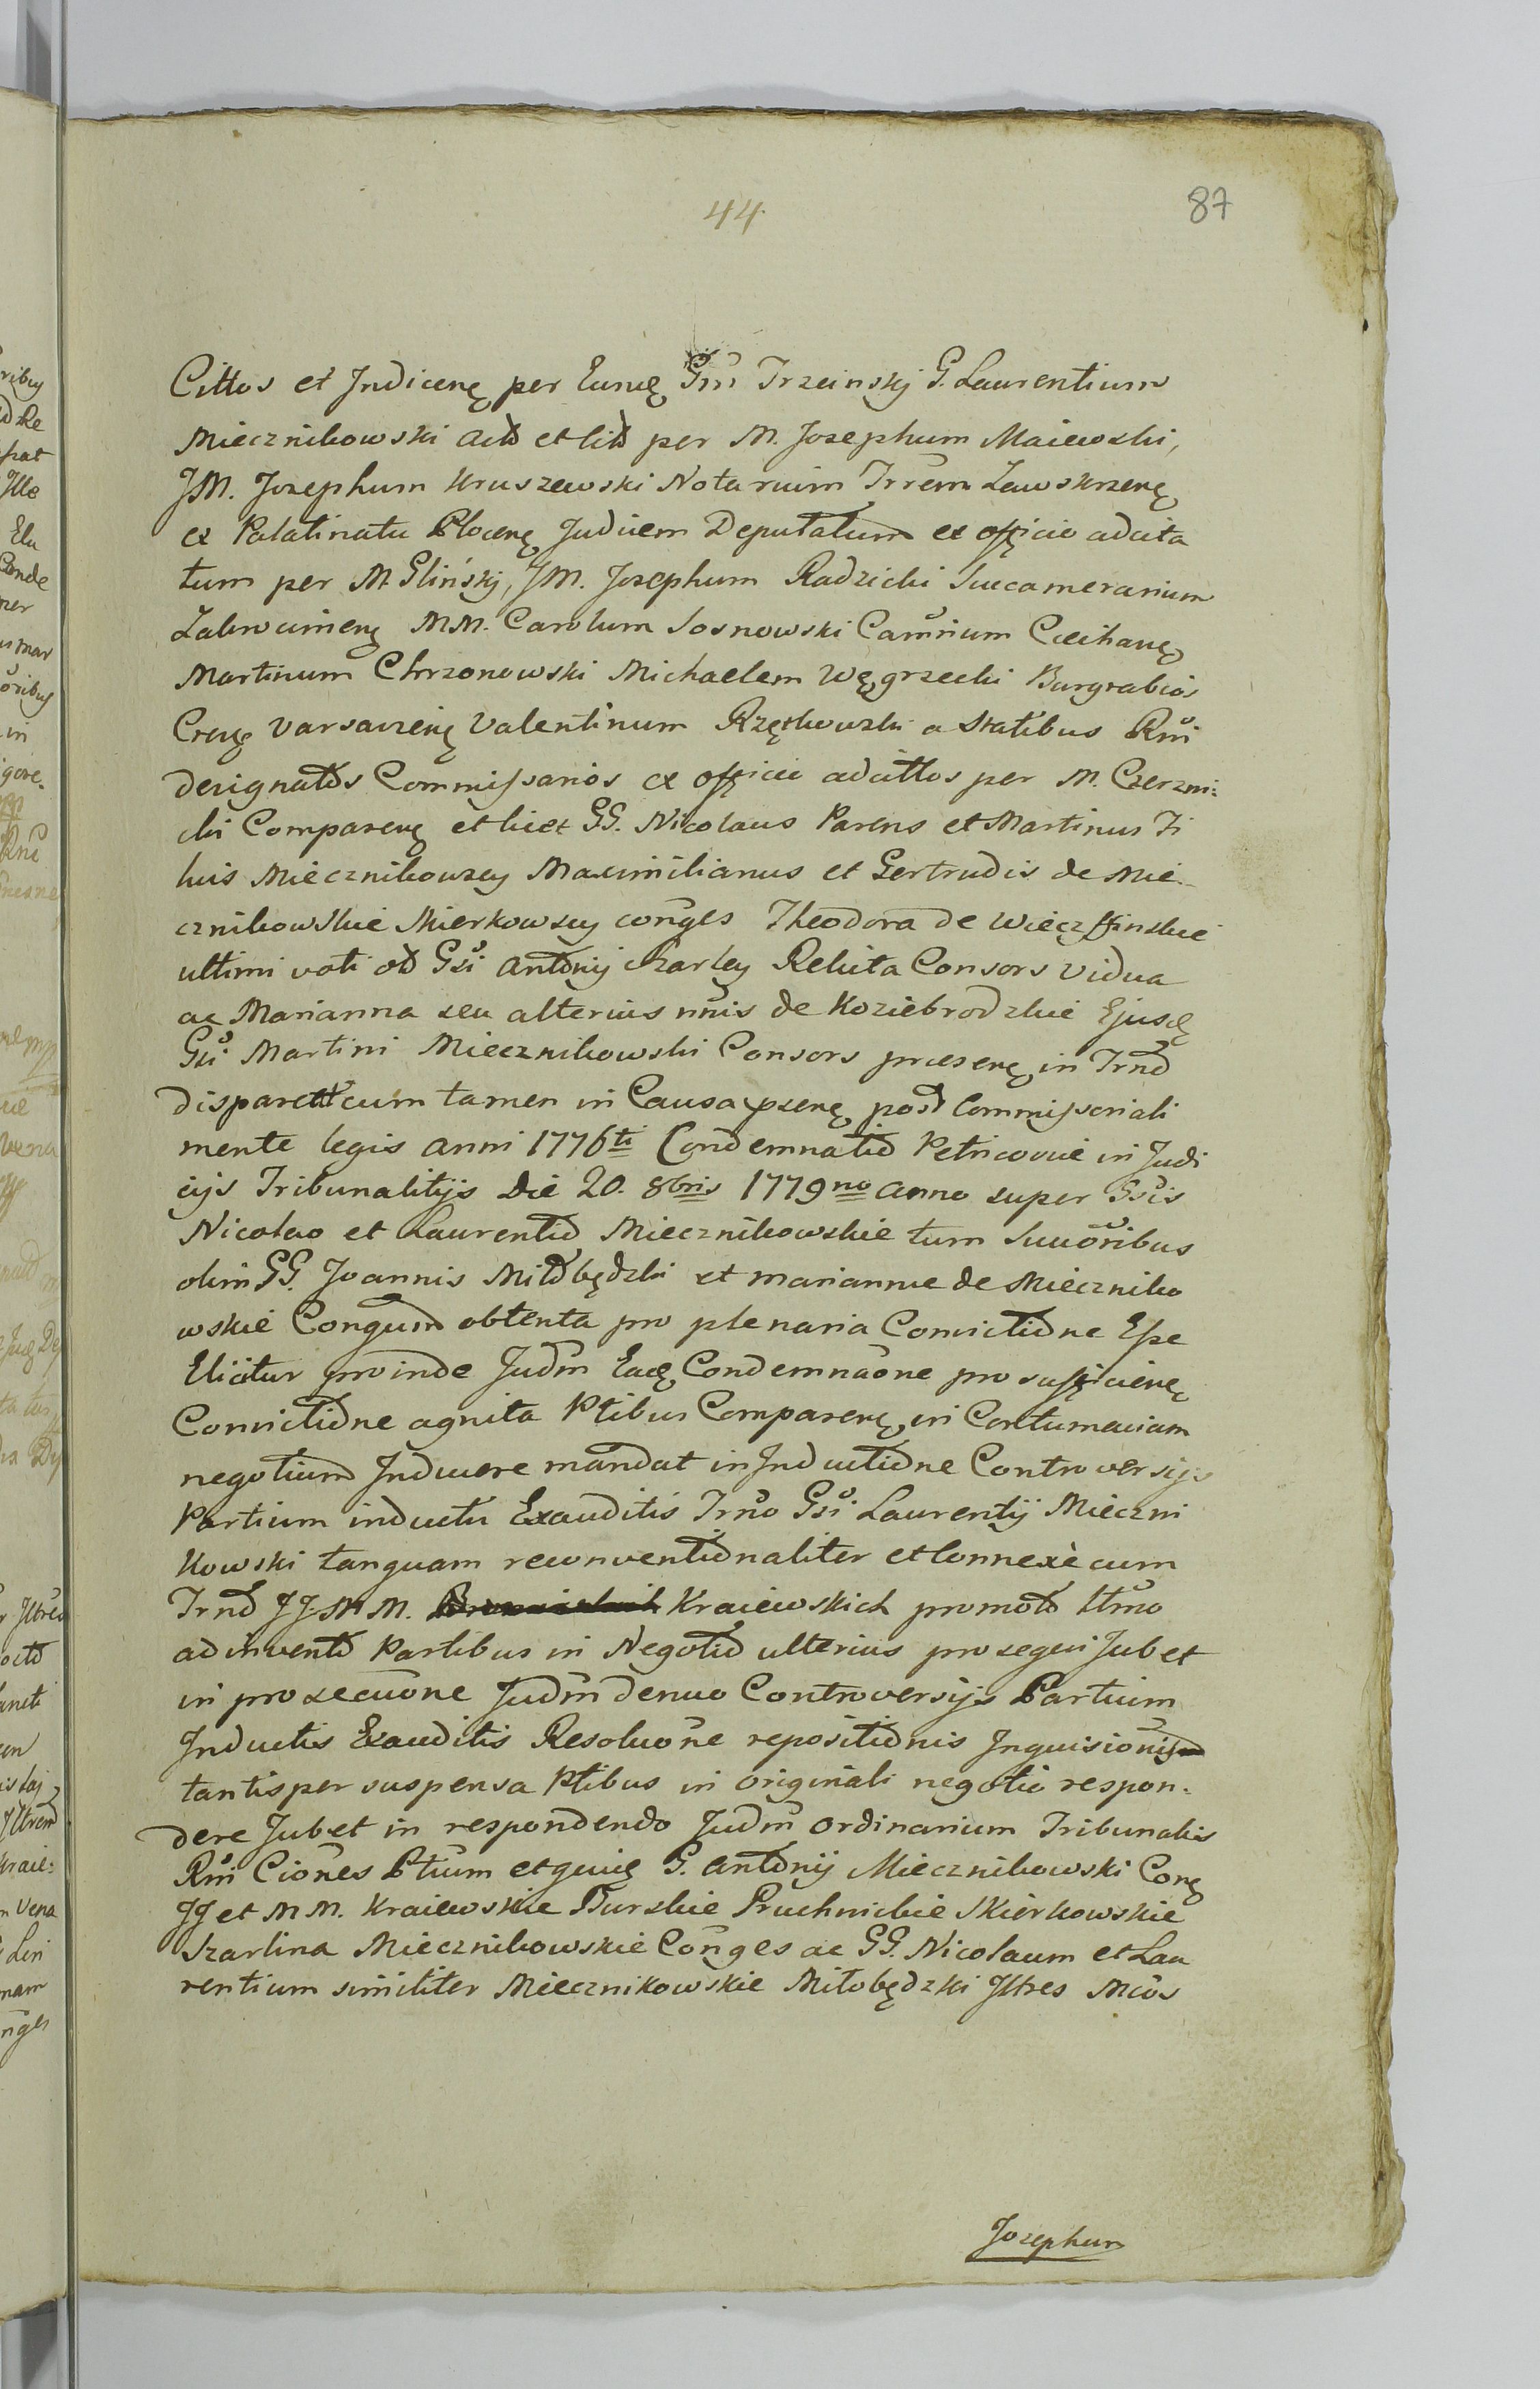 44.
87
Cittos et Judicenę per Eumę Gm̃ Trzcinskj G. Laurentium
Miecznikowski actõ et litõ per M. Josephum Maiewski,
JM. Josephum Kruszewski Notarium Trrem Zawskrzenę
ex Palatinatu Plocenę Judicem Deputatum ex officio adcita
tum per M Glińskj, JM. Josephum Radzicki Succamerarium
Zakrocimenę MM. Carolum Sosnowski Camrium Ciechanę
Martinum Chrzonowski Michaelem Węgrzecki Burgrabios
Crenę Varsavienę Valentinum Rzętkowski a Statibus Rni
designatos Commissarios ex officio adcittos per M. Czerzni=
cki Comparenę et licet GG. Nicolaus Parens et Martinus Fi
lius Miecznikowscy Maximilianus et Gertrudis de Mie-
cznikowskie Skierkowscy conges Theodora de Wieczffinskie
ultimi voti oĺ Gsi Antonij Szarley Relicta Consors vidua
ac Marianna seu alterius nnis de Koziebrodzkie Ejusę
Gsi Martini Miecznikowski Consors præsenę in Trnõ
disparent cum tamen in Causa pzenę post Commissoriali
mente legis anni 1776ti Condemnatio Petricoviæ in Judi
cijs Tribunalitijs Die 20. 8bris 1779no anno super Gsis
Nicolao et Laurentio Miecznikowskie tum Succoribus
olim GG. Joannis Miłobędzki et mariannæ de Mieczniko
wskie Congum obtenta pro plenaria Convictione Esse
Eliciatur proinde Judm Eadę Condemnaone pro sufficienę
Convictione agnita Ptibus Comparenę in Contumaciam
negotium Inducere mandat in Inductione Controversijs
Partium inductis Exauditis Trno Gsi Laurentij Mieczni
kowski tanquam reconventionaliter et connexè cum
Trno JJMM. Kraiewskich promoto Itmo
adinvento Partibus in Negotio ulterius prosequi Jubet
in prosecuone Judm denuo Controversijs Partium
Inductis Exauditis Resoluone repositionis Inquisionis
tantisper suspensa Ptibus in originali negotio respon-
dere Jubet in respondendo Judm ordinarium Tribunalis
Rni Ciones Ptium et G. Antonij Miecznikowski Conę
JJ et MM. Kraiewskie Burskie Pruchnickie Skierkowskie
Szarlina Miecznikowskie Conges ac GG. Nicolaum et Lau
rentium similiter Miecznikowskie Miłobędzki Jttres Mcos
Josephum